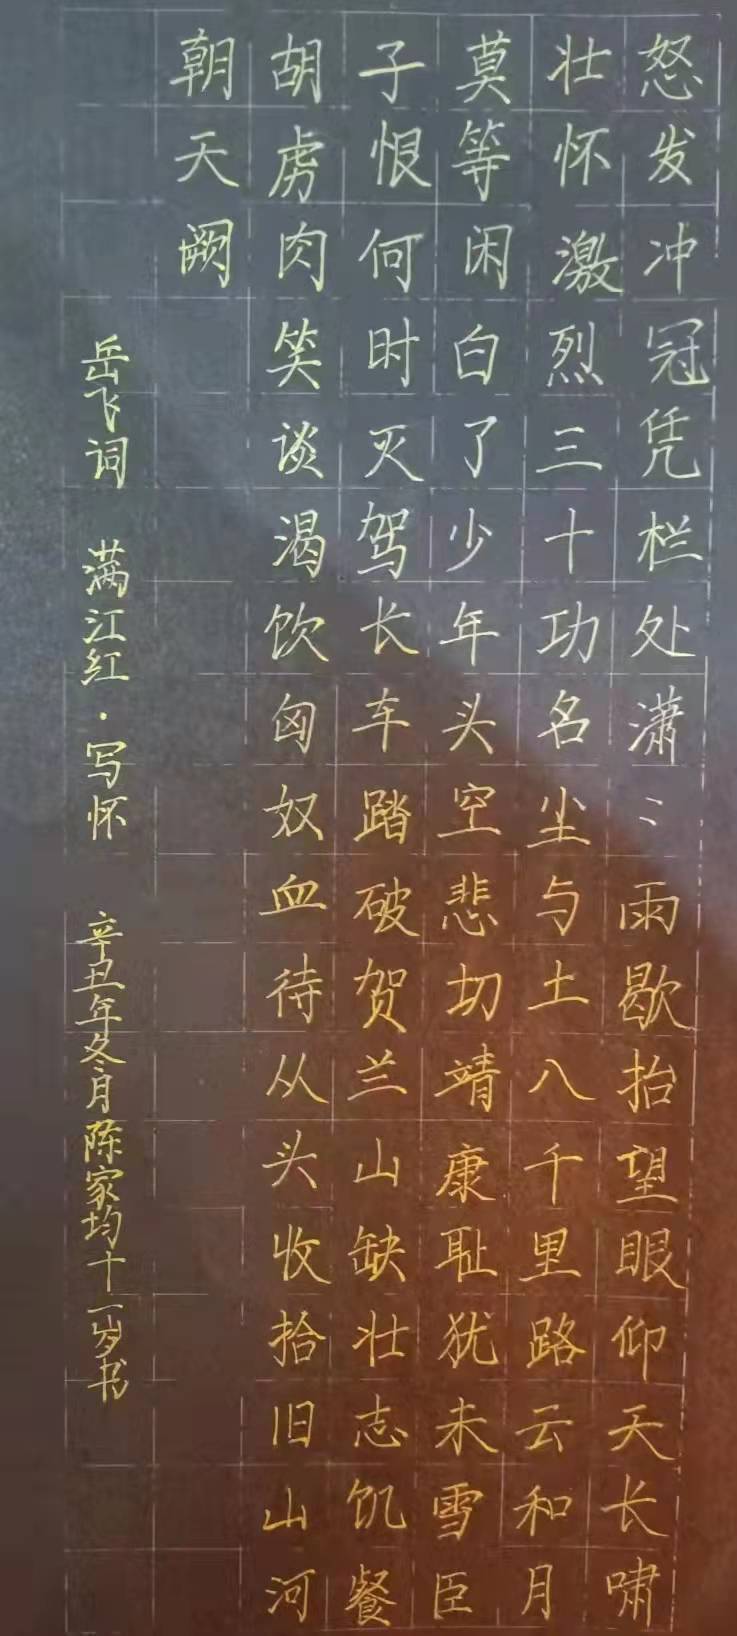 怒发冲冠凭栏处潇〻雨歇抬望眼仰天长啸
壮怀激烈三十功名尘与土八千里路云和月
莫等闲白了少年头空悲切靖康耻犹未雪臣
子恨何时灭驾长车踏破贺兰山缺壮志饥餐
胡虏肉笑谈渴饮匈奴血待从头收拾旧山河
朝天阙
岳飞词 满江红·写怀 辛丑年冬月陈家均十一岁书